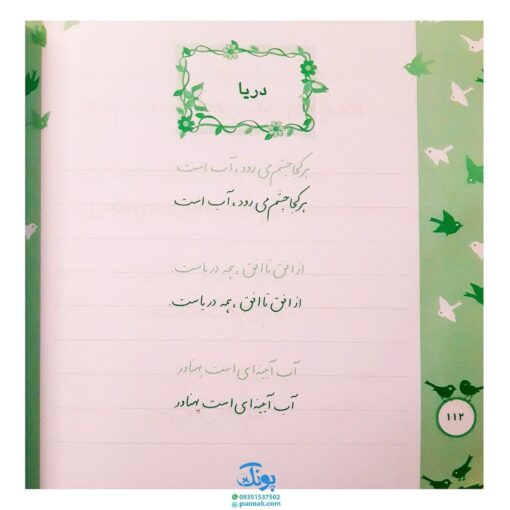 دریا
هر کجا چشم می رود ، آب است
هر کجا چشم می رود ، آب است
از افق تا افق ، همه دریاست.
از افق تا افق ، همه دریاست.
آب آیینه‌ای است پهناور
آب آیینه‌ای است پهناور
۱۱۲
پونک
09351537502
puonak.com